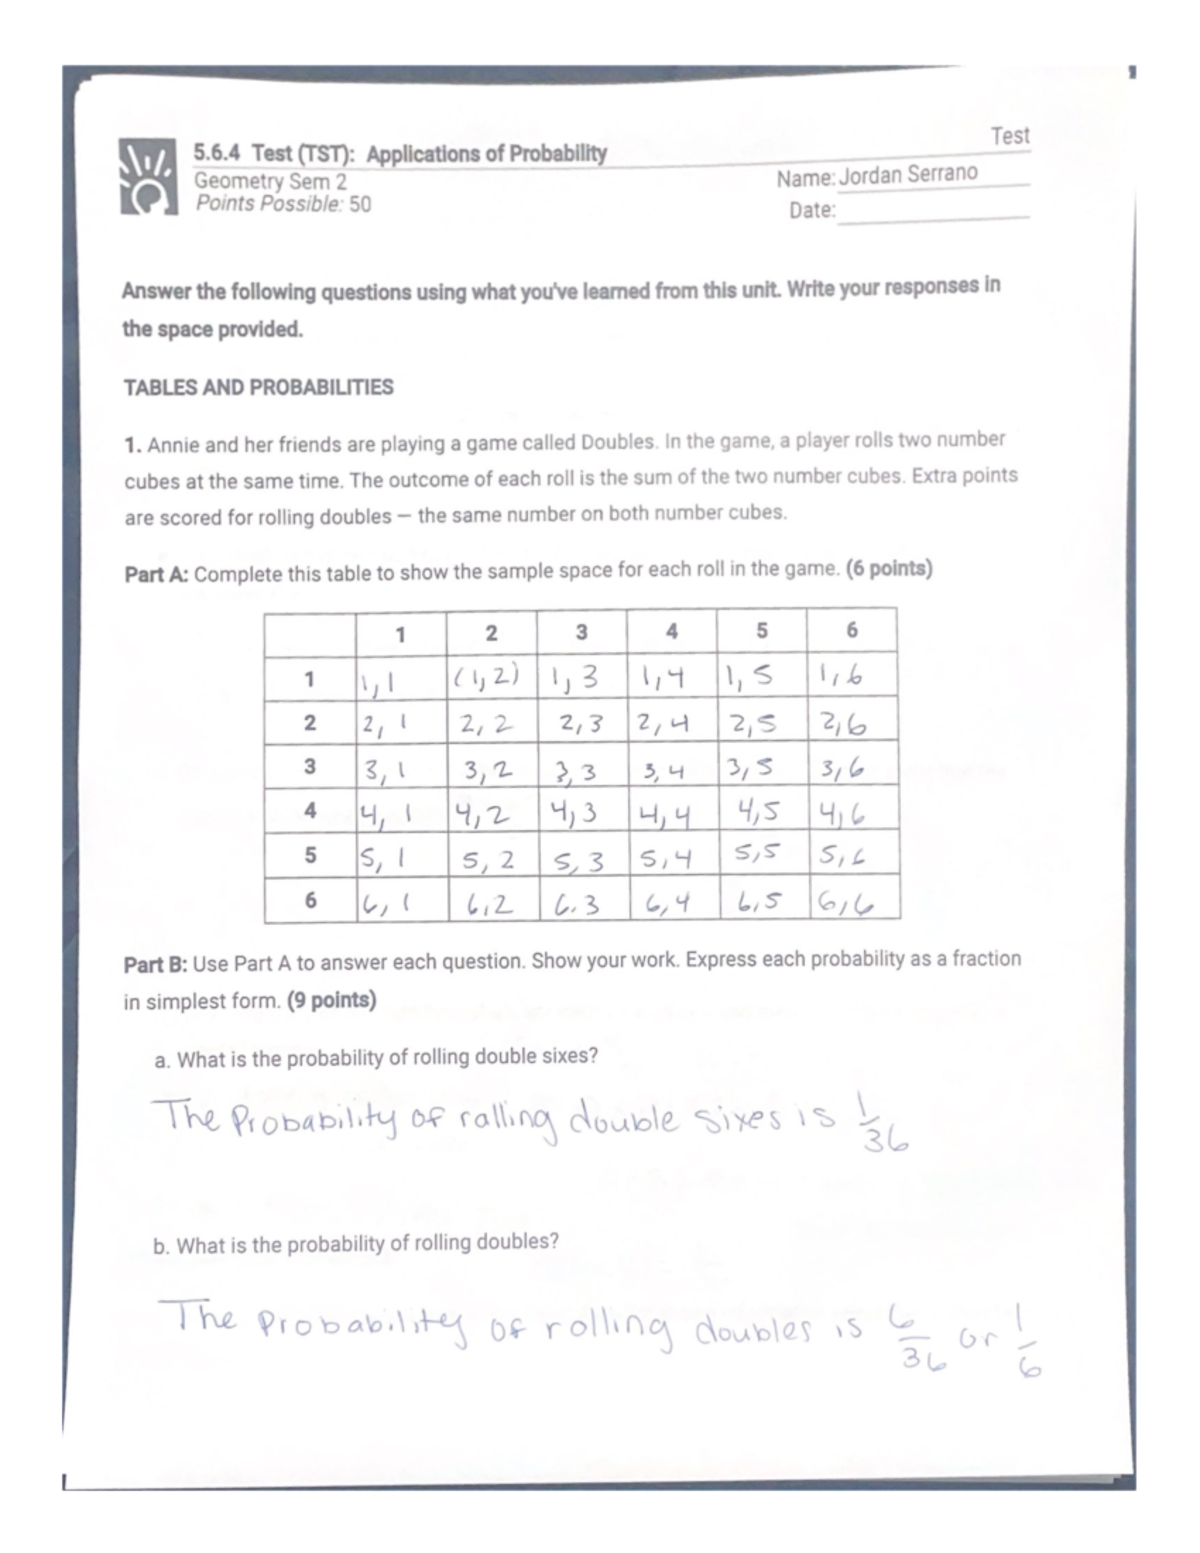 Test
5.6.4 Test (TST): Applications of Probability
Geometry Sem 2
Name: Jordan Serrano
Points Possible: 50
Date:
Answer the following questions using what you've learned from this unit. Write your responses in
the space provided.
TABLES AND PROBABILITIES
1. Annie and her friends are playing a game called Doubles. In the game, a player rolls two number
cubes at the same time. The outcome of each roll is the sum of the two number cubes. Extra points
are scored for rolling doubles – the same number on both number cubes.
Part A: Complete this table to show the sample space for each roll in the game. (6 points)
1 2 3 4 5 6
1 1,1 (1,2) 1,3 1,4 1,5 1,6
2 2,1 2,2 2,3 2,4 2,5 2,6
3 3,1 3,2 3,3 3,4 3,5 3,6
4 4,1 4,2 4,3 4,4 4,5 4,6
5 5,1 5,2 5,3 5,4 5,5 5,6
6 6,1 6,2 6.3 6,4 6,5 6,6
Part B: Use Part A to answer each question. Show your work. Express each probability as a fraction
in simplest form. (9 points)
a. What is the probability of rolling double sixes?
The Probability of ralling double sixes is 1/36
b. What is the probability of rolling doubles?
The Probability of rolling doubles is 6/36 or 1/6